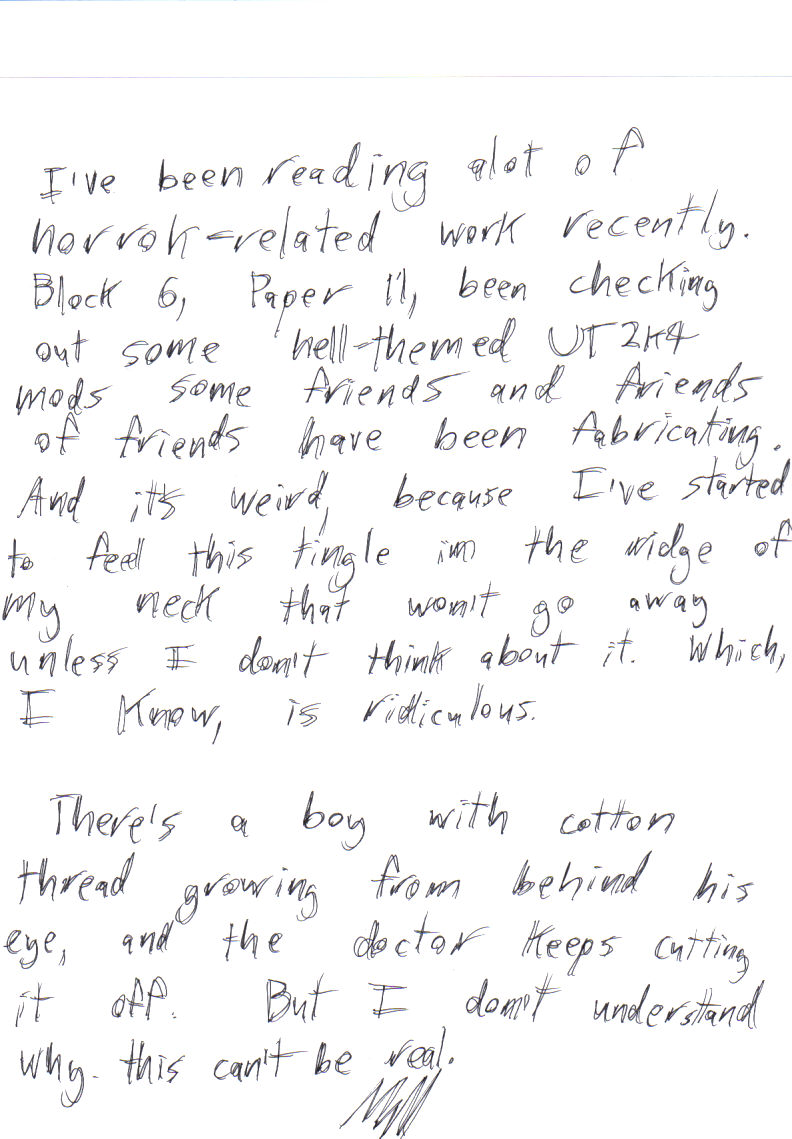 I've been reading alot of
horror-related work recently.
Block 6, Paper 11, been checking
out some hell-themed UT2K4
mods some friends and friends
of friends have been fabricating.
And it's weird, because I've started
to feel this tingle in the ridge of
my neck that won't go away
unless I don't think about it. Which,
I know, is ridiculous.
There's a boy with cotton
thread growing from behind his
eye, and the doctor keeps cutting
it off. But I don't understand
why. this can't be real.